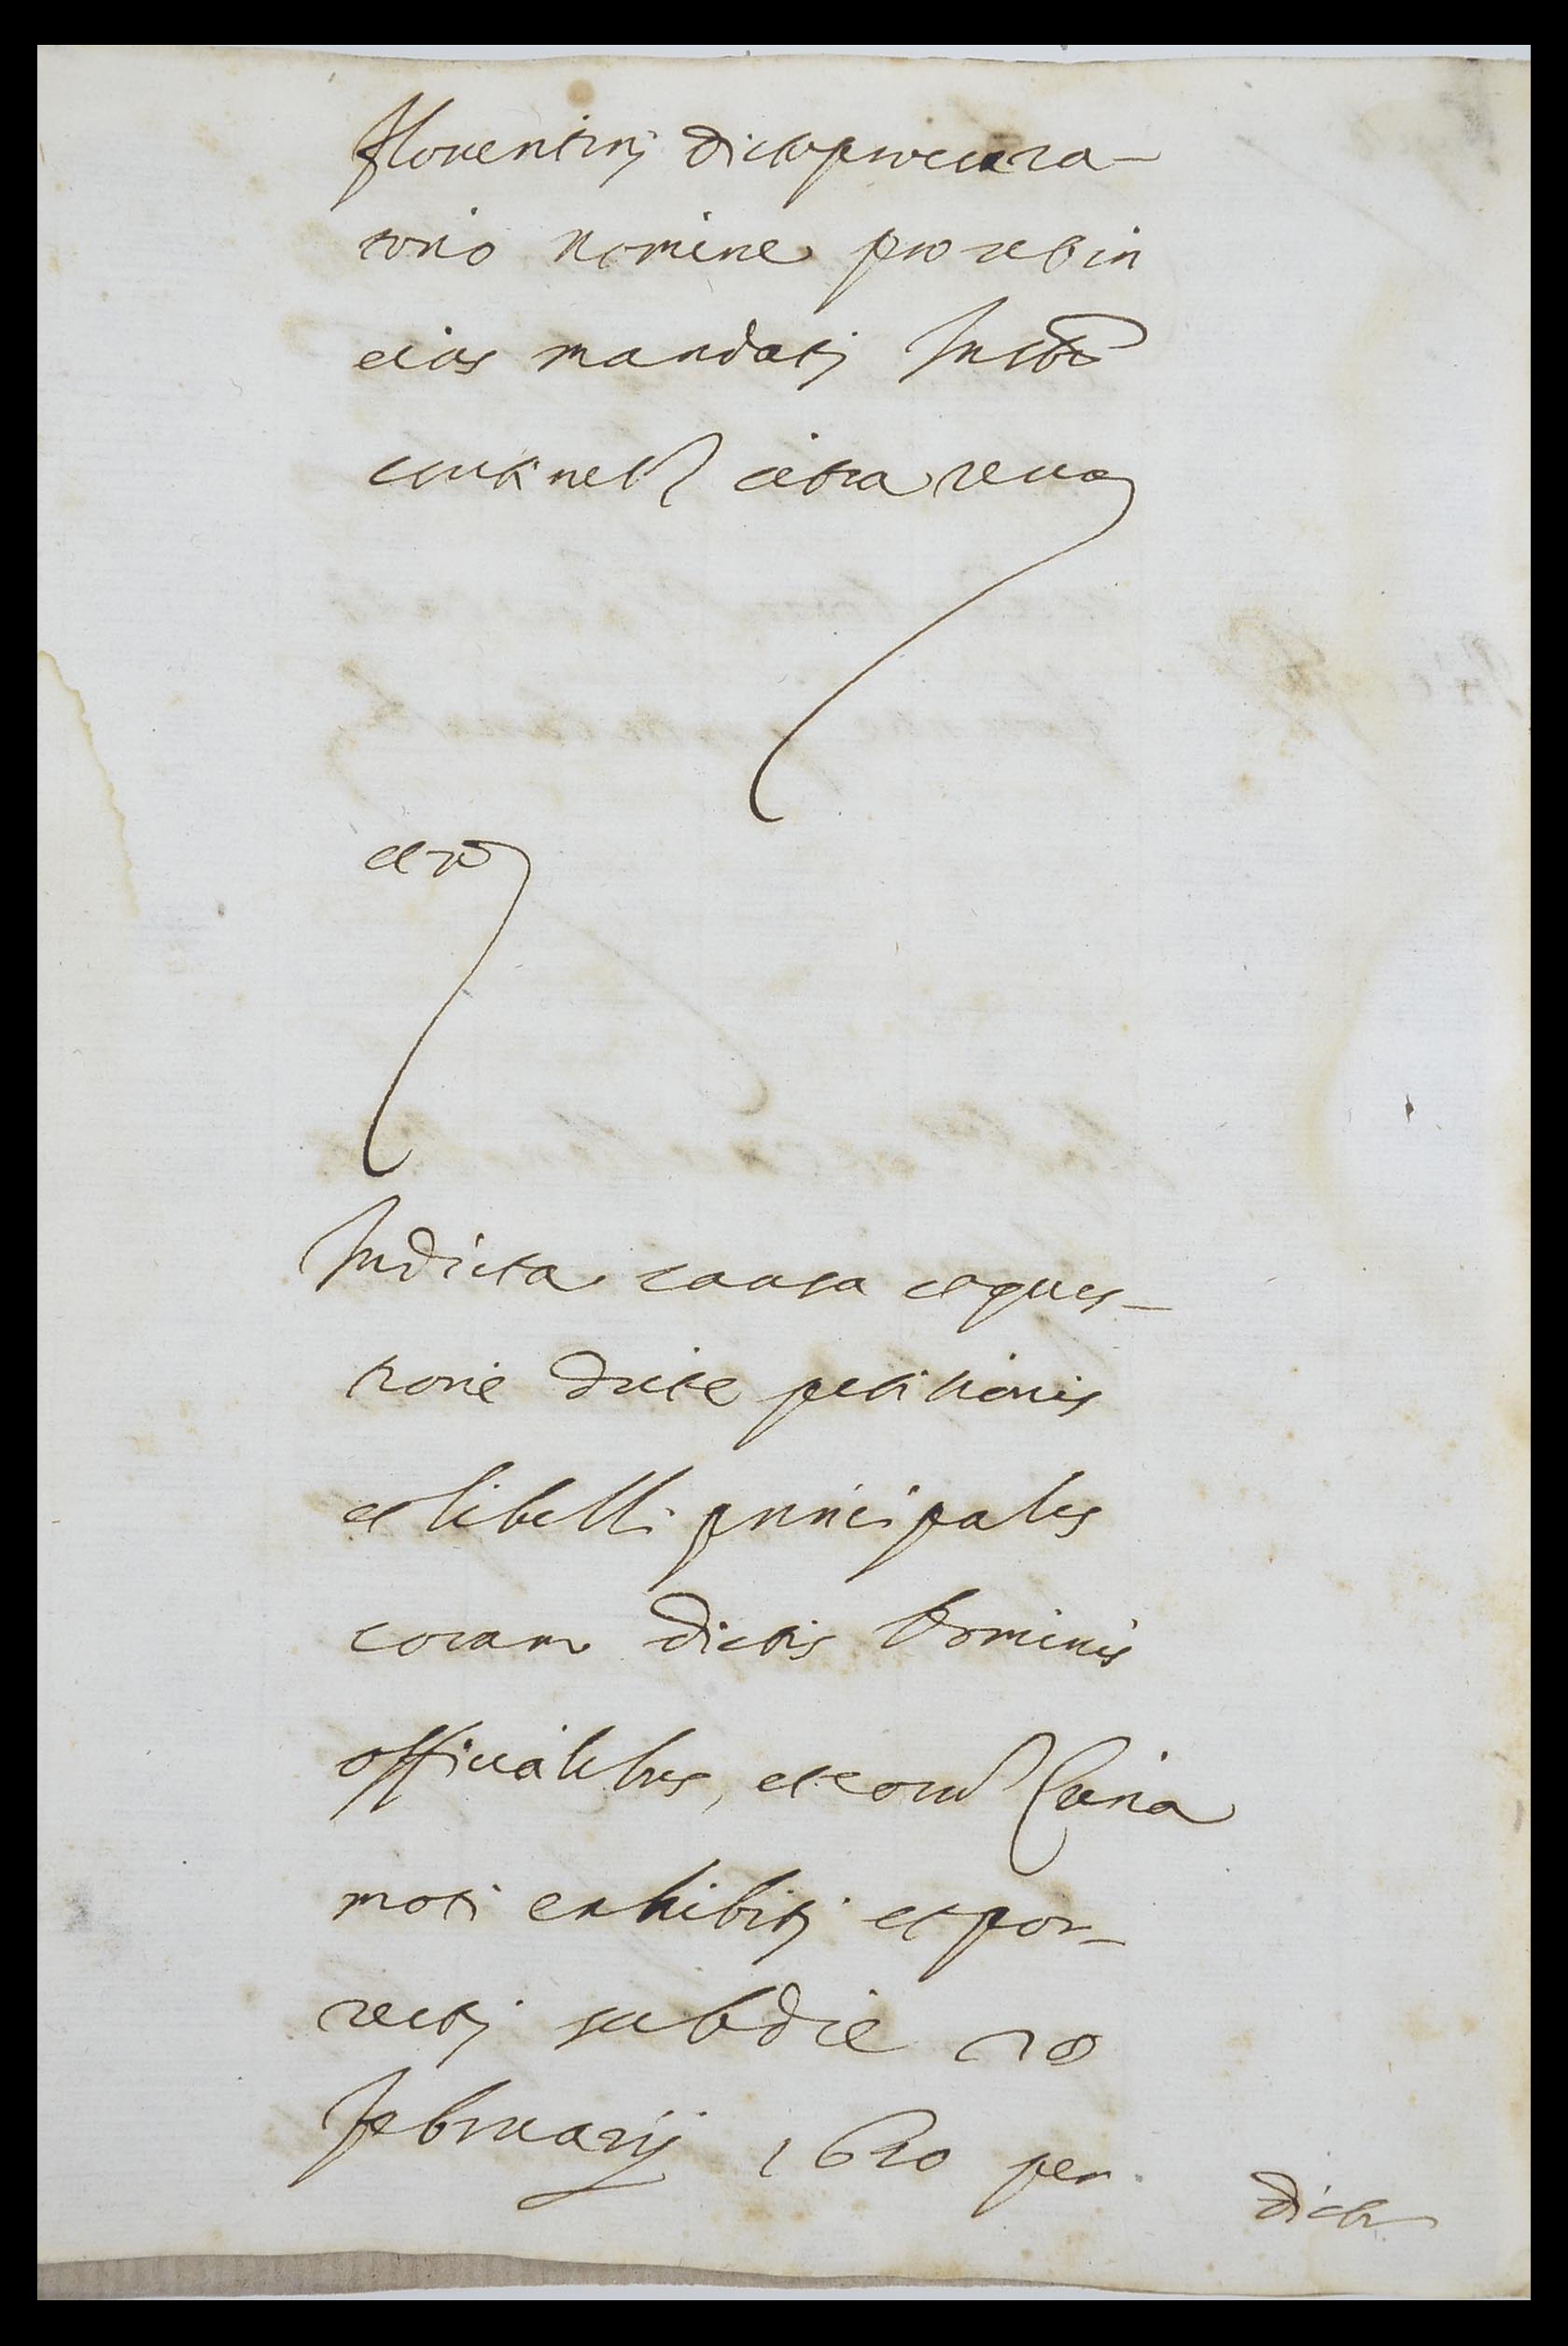 florentinj dicto procura-
torio nomine pro ut in
eius mandatj
continetr citra revoc
etc
In dicta causa et ques-
tione dicte petitionis
et libelli principales
coram dictis Dominis
officialibus, et eorum Curia
moti exhibitj et por-
rectj sub die 28
februarij 1620 per
dict